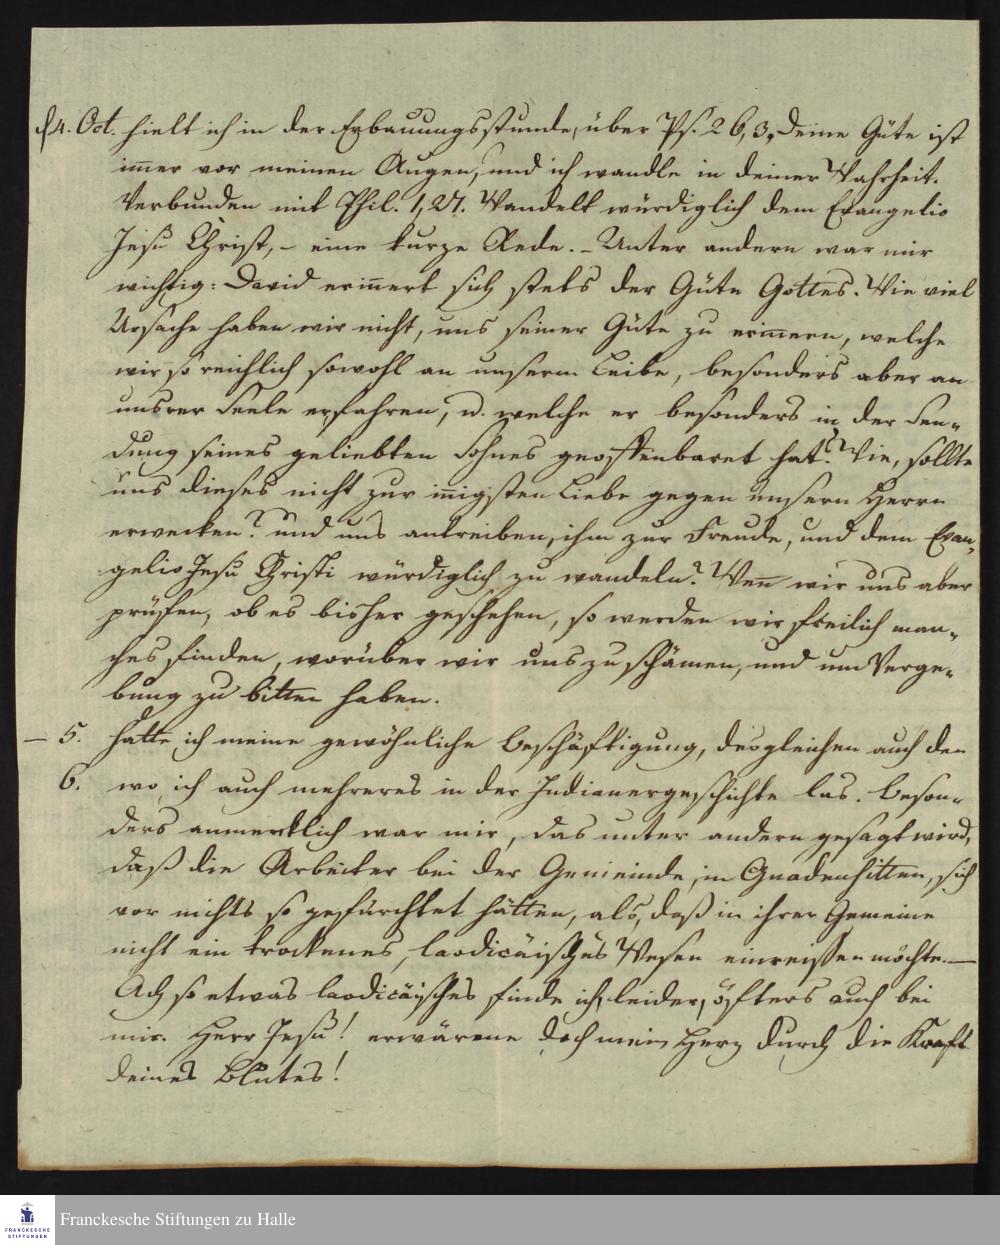 d 4. Oct. hielt ich in der Erbauungsstunde, über Ps. 26,3, deine Güte ist
im̅er vor meinen Augen, und ich wandle in deiner Wahrheit.
Verbunden mit Phil. 1,27. Wandelt würdiglich dem Evangelio
Jesu Christ, – eine kurze Rede. – Unter andern war mir
wichtig: David erin̅ert sich stets der Güte Gottes. Wie viel
Ursache haben wir nicht, uns seiner Güte zu erin̅ern, welche
wir so reichlich sowohl an unserm Leibe, besonders aber an
unsrer Seele erfahren, u. welche er besonders in der Sen-
dung seines geliebten Sohnes geoffenbaret hat? Wie, sollte
uns dieses nicht zur in̅igsten Liebe gegen unsern Herrn
erwecken? und uns antreiben, ihm zur Freude, und dem Evan-
gelio Jesu Christi würdiglich zu wandeln? Wen̅ wir uns aber
prüfen, ob es bisher geschehen, so werden wir freilich man-
ches finden, worüber wir uns zu schämen, und um Verge-
bung zu bitten haben.
– 5. hatte ich meine gewöhnliche Beschäftigung, desgleichen auch den
6. wo ich auch mehreres in der Indianergeschichte las. Beson-
ders anmerklich war mir, das unter andern gesagt wird,
daß die Arbeiter bei der Gemeinde, in Gnadenhütten, sich
vor nichts so gefürchtet hätten, als, daß in ihrer Gemeine
nicht ein trockenes, laodicäisches Wesen einreissen möchte. –
Ach so etwas laodicäisches finde ich, leider, öfters auch bei
mir. Herr Jesu! erwärme doch mein Herz durch die Kraft
deines Blutes!
FRANCKESCHE
STIFTUNGEN
Franckesche Stiftungen zu Halle